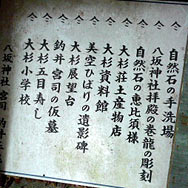 自然石の手洗場
八坂神社拝殿の巻龍の彫刻
自然石の恵比須様
大杉荘土産物店
大杉資料館
美空ひばりの遺影碑
大杉展望台
釣井宮司の仮墓
大杉五目寿し
大杉小学校
八坂神社宮司